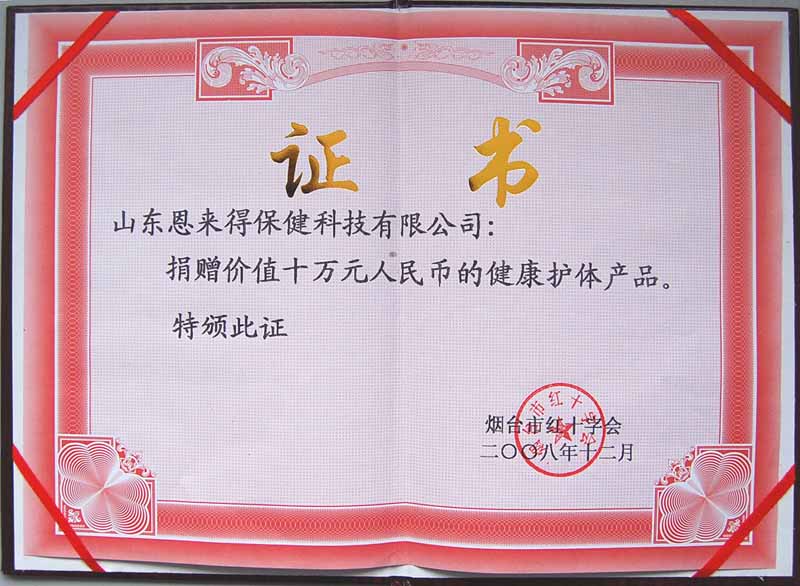 证 书
山东恩来得保健科技有限公司：
捐赠价值十万元人民币的健康护体产品。
特颁此证
烟台市红十字会
二〇〇八年十二月
烟台市红十字会